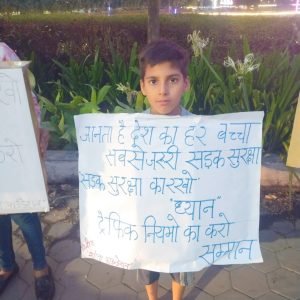 जानता है देश का हर बच्चा
सबसे जरूरी सड़क सुरक्षा
सड़क सुरक्षा का रखो
"ध्यान"
ट्रैफिक नियमो का करो
सम्मान